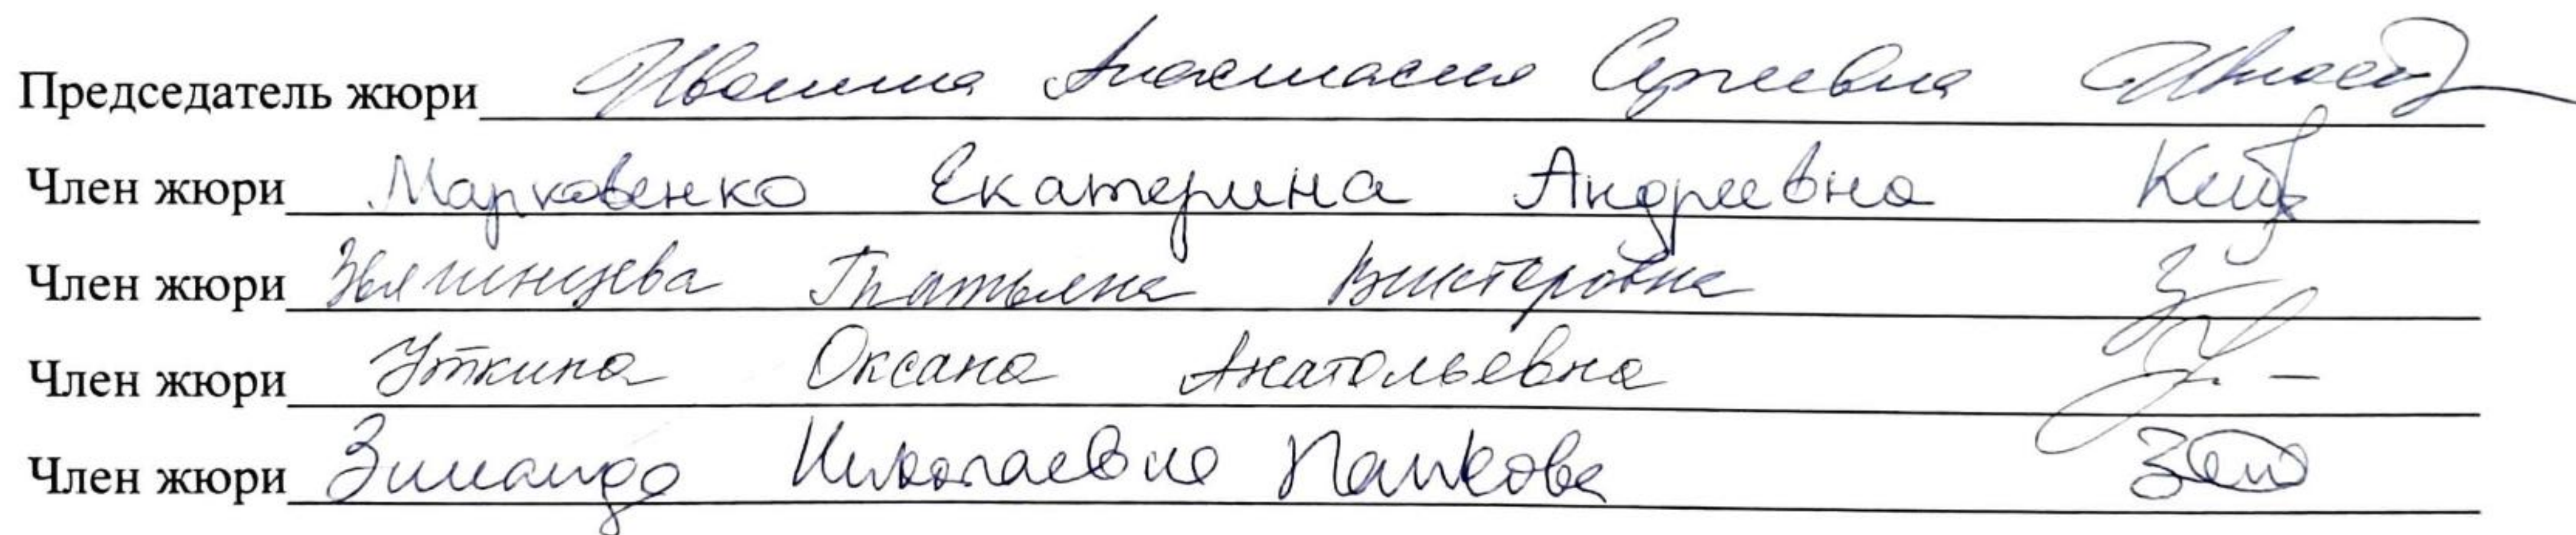 Председатель жюри Ивонина Анастасия Сергеевна
Член жюри Марковенко Екатерина Андреевна
Член жюри Звягинцева Татьяна Викторовна
Член жюри Уткина Оксана Анатольевна
Член жюри Зинаида Николаевна Панкова